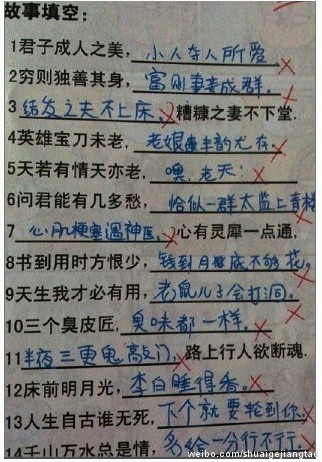 故事填空:
1君子成人之美,小人夺人所爱
2穷则独善其身,富则妻妾成群。
3结发之夫不上床,糟糠之妻不下堂.
4英雄宝刀未老,老娘丰韵尤存。
5天若有情天亦老,噢,老天!
6问君能有几多愁,恰似一群太监上青楼
7心肌梗塞遇神医,心有灵犀一点通,
8书到用时方恨少,钱到月底不够花。
9天生我才必有用,老鼠儿子会打洞。
10三个臭皮匠,臭味都一样。
11半夜三更鬼敲门,路上行人欲断魂.
12床前明月光,李白睡得香。
13人生自古谁无死,下个就要轮到你。
14千山万水总是情,多给一分行不行。
weibo.com/shuaigejiangtao